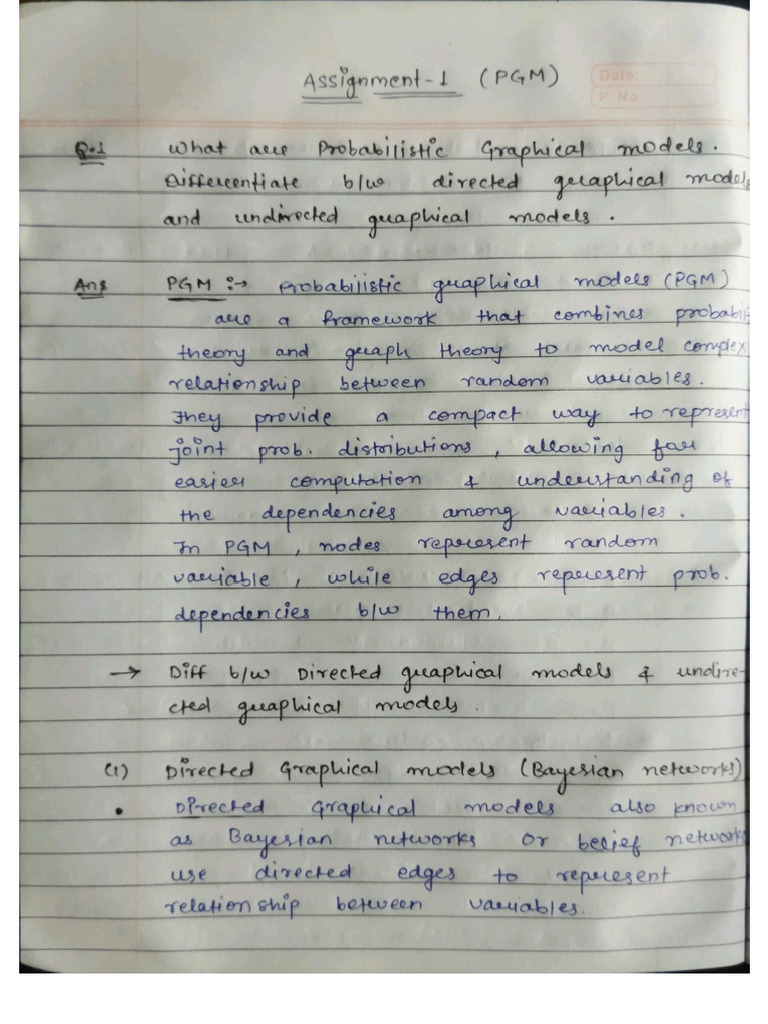 Assignment-1 (PGM)
Date
P. No
Q.1 What are Probabilistic Graphical models.
Differentiate b/w directed graphical models
and undirected graphical models.
Ans PGM :→ Probabilistic graphical models (PGM)
are a framework that combines probabi
theory and graph theory to model complex
relationship between random variables.
They provide a compact way to represent
joint prob. distributions, allowing for
easier computation & understanding of
the dependencies among variables.
In PGM, nodes represent random
variable, while edges represent prob.
dependencies b/w them.
→ Diff b/w Directed graphical models & undire-
cted graphical models.
(1) Directed Graphical models (Bayesian networks)
• Directed Graphical models also known
as Bayesian networks or belief networks
use directed edges to represent
relationship between variables.